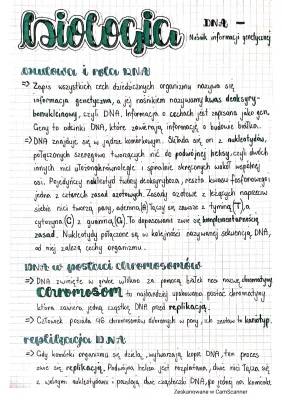 biologia
DNA -
Nośnik informacji genetycznej
Budowa i rola DNA
⇒ Zapis wszystkich cech dziedzicznych organizmu nazywa się
informacja genetyczna, a jej nośnikiem nazywamy kwas deoksyry-
bonukleinowy, czyli DNA. Informacja o cechach jest zapisana jako gen.
Geny to odcinki DNA, które zawierają informację o budowie białka.
⇒ DNA znajduje się w jądrze komórkowym. Składa się on z nukleotydów,
połączonych szeregowo tworzących nić do podwójnej heksy, czyli dwóch
innych nici
osi. Pojedynczy nukleotyd tworzy deoksyryboza, reszta kwasu fosforowego i
jedna z czterech zasad azotowych. Zasady azotowe z leżących naprzeciw
siebie nici tworzą pary, adenina (A) łączy się zawsze z tyminą (T), a
cytozyna (C) z guaniną (G). To dopasowanie zwie się komplementarnością
zasad. Nukleotydy połączone są w kolejności nazywanej sekwencją DNA,
od niej zależą cechy organizmu.
DNA w postaci chromosomów
⇒ DNA zwinięte w jądrze wokół za pomocą białek nosi nazwę chromatyny
Chromosom to najbardziej upakowana postać chromatyny
która zawiera jedną cząstkę DNA przed replikacją.
⇒ Człowiek posiada 46 chromosomów dobranych w pary, ich zestaw to kariotyp.
replikacja DNA
⇒ Gdy komórki organizmu się dzielą, wytwarzają kopie DNA, ten proces
zwie się replikacją. Podwójna helisa jest rozplatana, dwie nici łączą się
z wolnymi nukleotydami i powstają dwie cząsteczki DNA, po jednej na komórkę
Zeskanowane w CamScanner